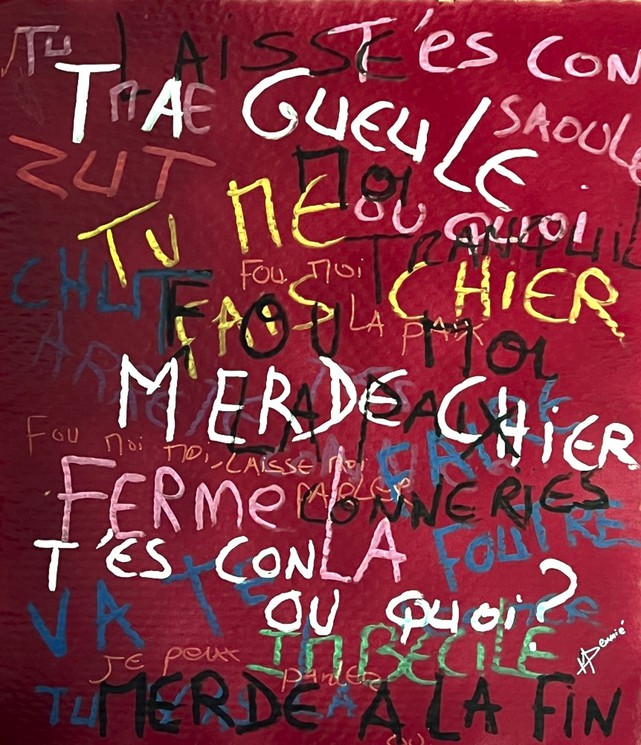 Tu LAISSE T'ES CON
TA GUEULE
ME SAOULE
ZUT MOI
TU ME OU QUOI
TRANQUIL
CHUT FOU MOI CHIER
FAIS LA PAIX
FOU MOI
ARRETE
MERDE CHIER
LA PAIX
FOU MOI MOI, LAISSE MOI FAIRE
FERME PARLER
CONNERIES
T'ES CON LA FOUTRE
VA TE OU QUOI?
IMBECILE
JE PEUX PARLER
TU MERDE A LA FIN
OU